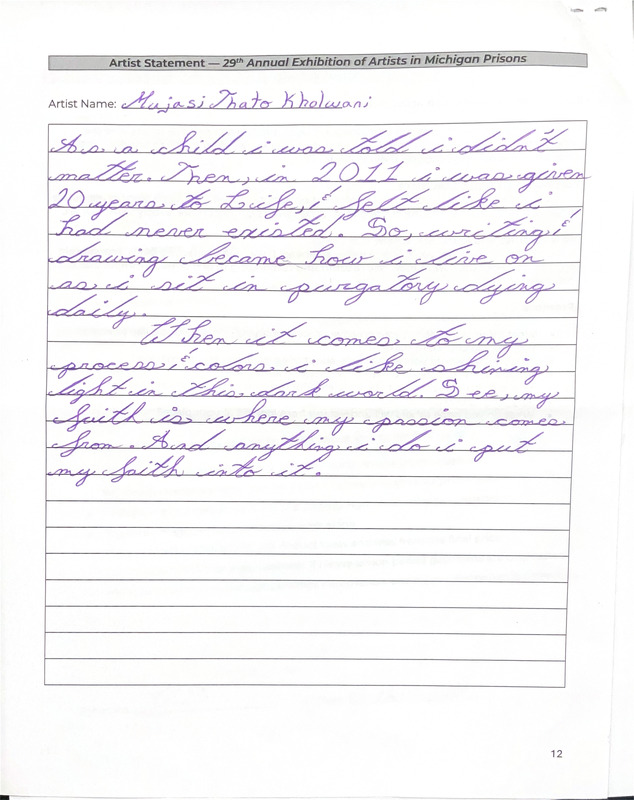 Artist Statement — 29th Annual Exhibition of Artists in Michigan Prisons
Artist Name: Mujasi Thato Kholwani
As a child i was told i didn't
matter. Then, in 2011 i was given
20 years to Life, & felt like i
had never existed. So, writing &
drawing became how i live on
as i sit in purgatory dying
daily.
When it comes to my
process & colors i like shining
light in this dark world. See, my
faith is where my passion comes
from. And anything i do i put
my faith into it.
12